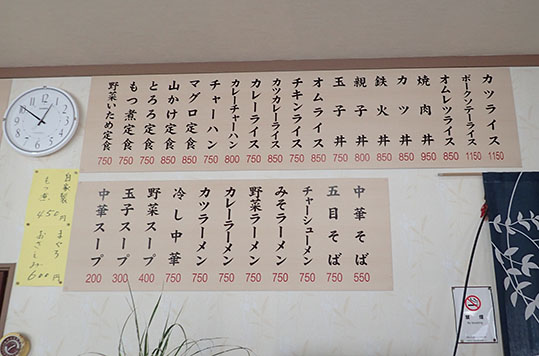 カツライス 1150
ポークソテーライス 1150
オムレツライス 850
焼肉丼 950
カツ丼 850
鉄火丼 850
親子丼 800
玉子丼 750
オムライス 850
チキンライス 750
カツカレーライス 850
カレーライス 750
カレーチャーハン 800
チャーハン 750
マグロ定食 850
山かけ定食 850
とろろ定食 750
もつ煮定食 750
野菜いため定食 750
中華そば 550
五目そば 750
チャーシューメン 750
みそラーメン 750
野菜ラーメン 750
カレーラーメン 750
カツラーメン 750
冷し中華 750
野菜スープ 400
玉子スープ 300
中華スープ 200
自家製
もつ煮
450円
まぐろ
おさしみ
600円
禁煙